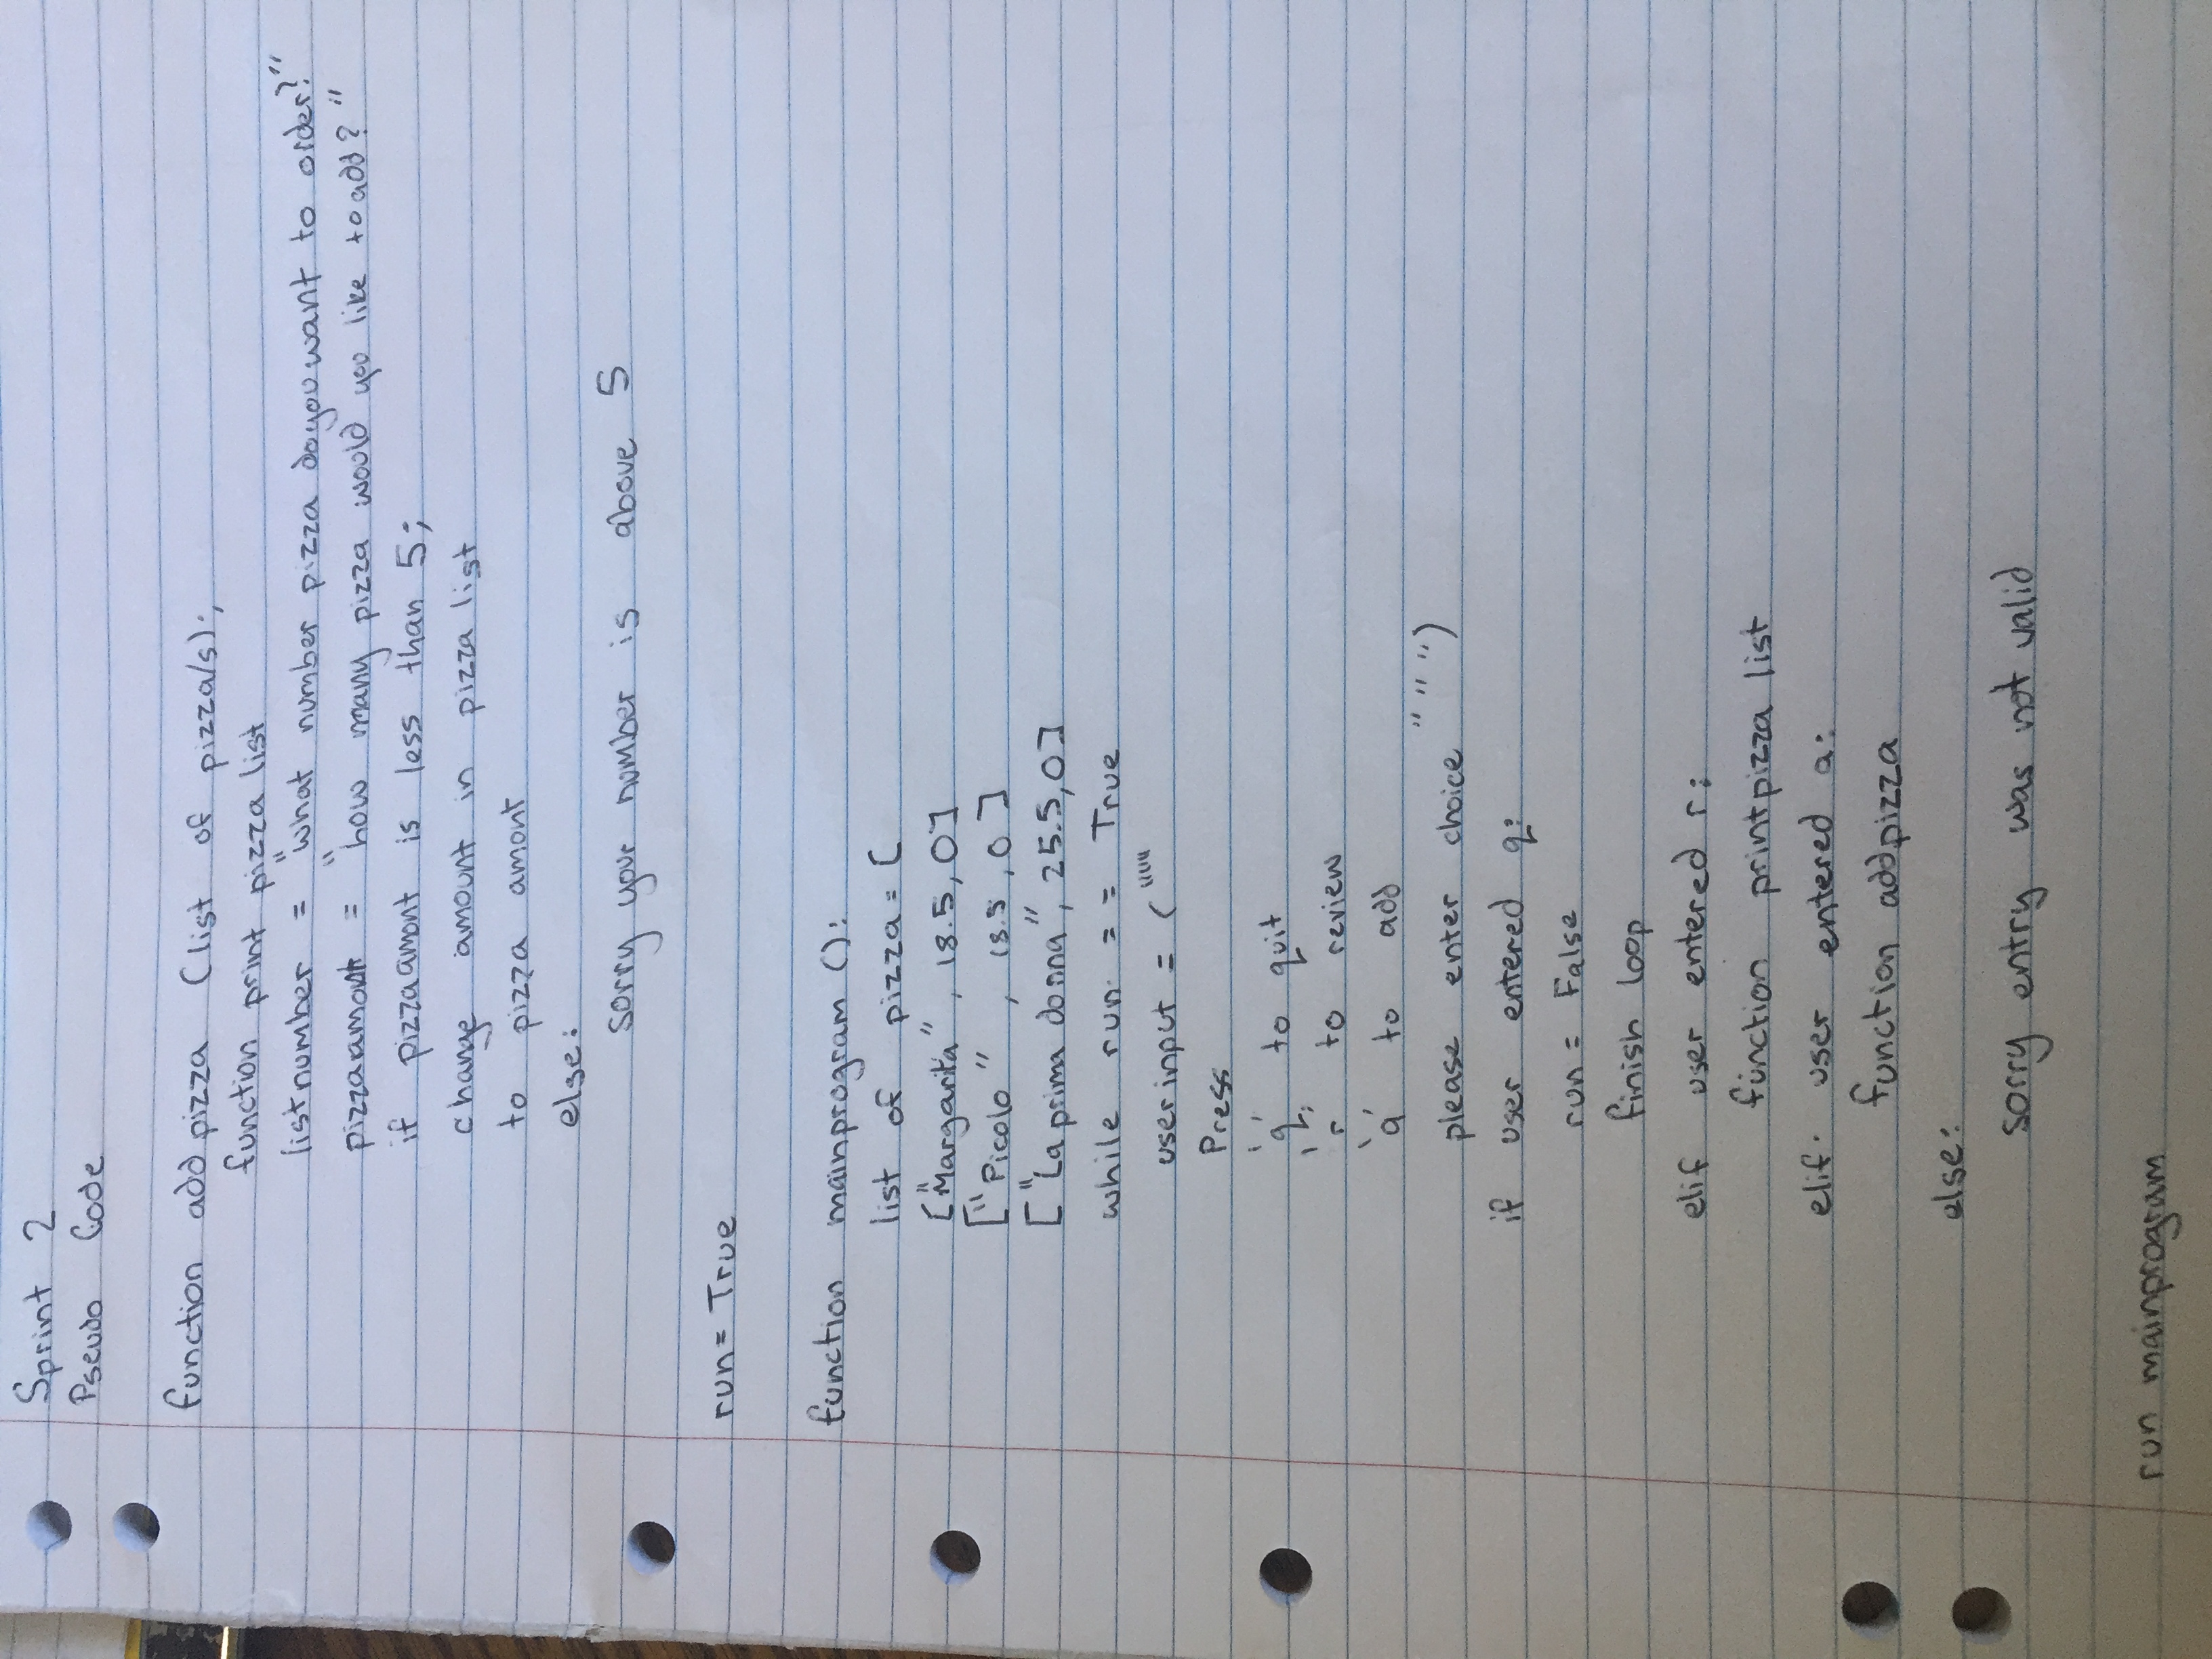 Sprint 2
Pseudo Code
function add pizza (list of pizza/s):,
function print pizza list
listnumber = "what number pizza do you want to order?"
pizzaamont = "how many pizza would you like to add?"
if pizzaamont is less than 5;
change amount in pizza list
to pizza amont
else:
sorry your number is above 5
run = True
function mainprogram ():
list of pizza = [
["Margarita", 18.5, 0]
["Picolo", 18.5, 0]
["La prima donna", 25.5, 0]
while run == True
userinput = ("""
Press
'q' to quit
'r' to review
'a' to add
please enter choice """)
if user entered q:
run = False
finish loop
elif user entered r:
function printpizza list
elif user entered a:
function addpizza
else:
sorry entry was not valid
run mainprogram